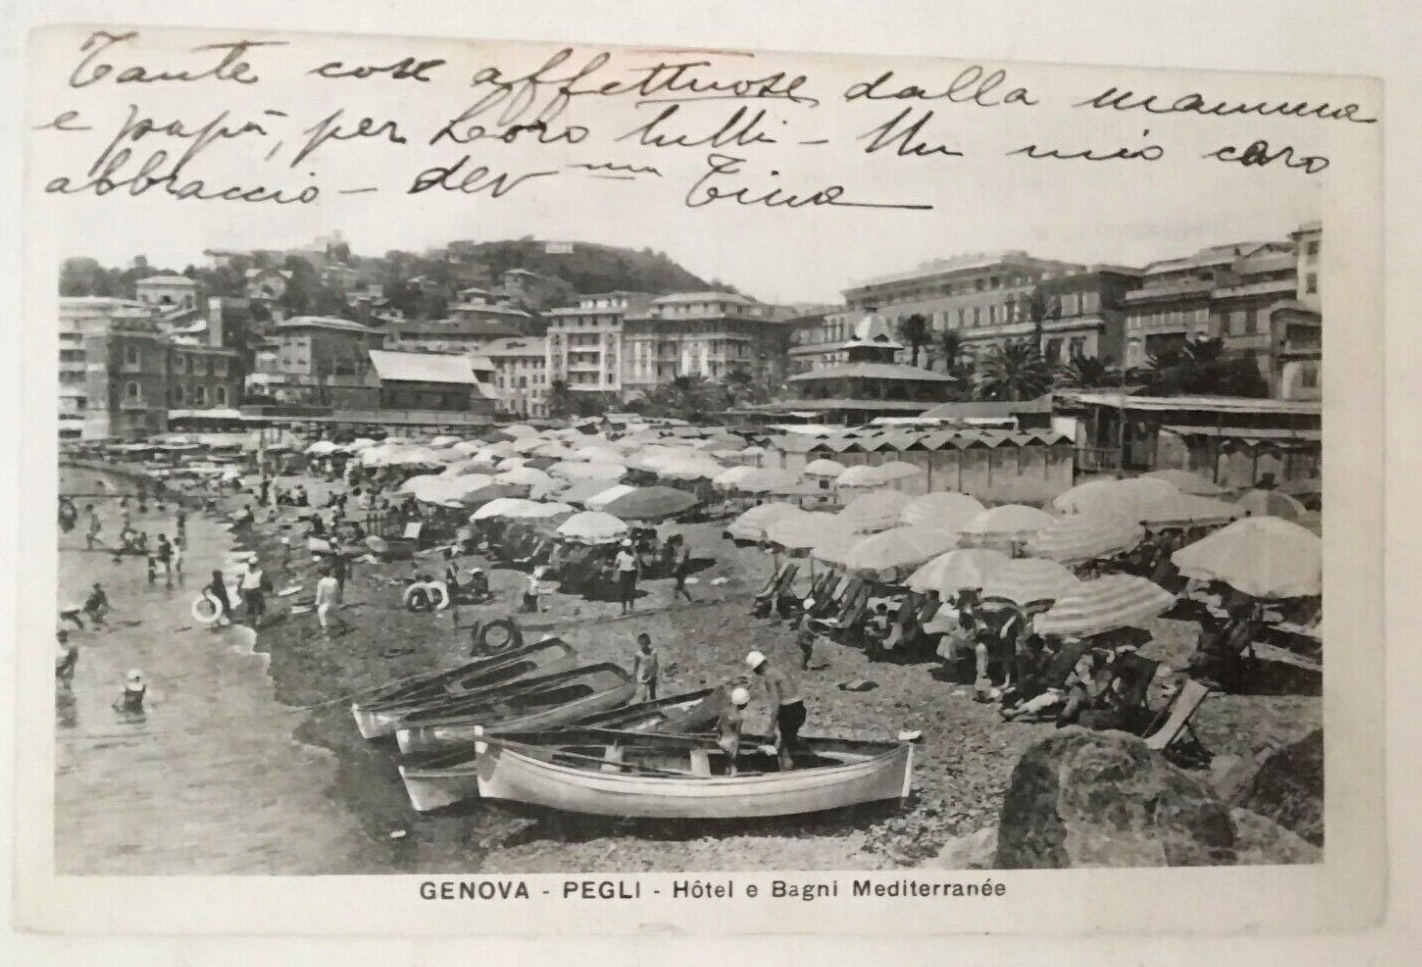 Tante cose affettuose dalla mamma
e papà, per Loro tutti - Un mio caro
abbraccio - dev ma Tina
GENOVA - PEGLI - Hôtel e Bagni Mediterranée